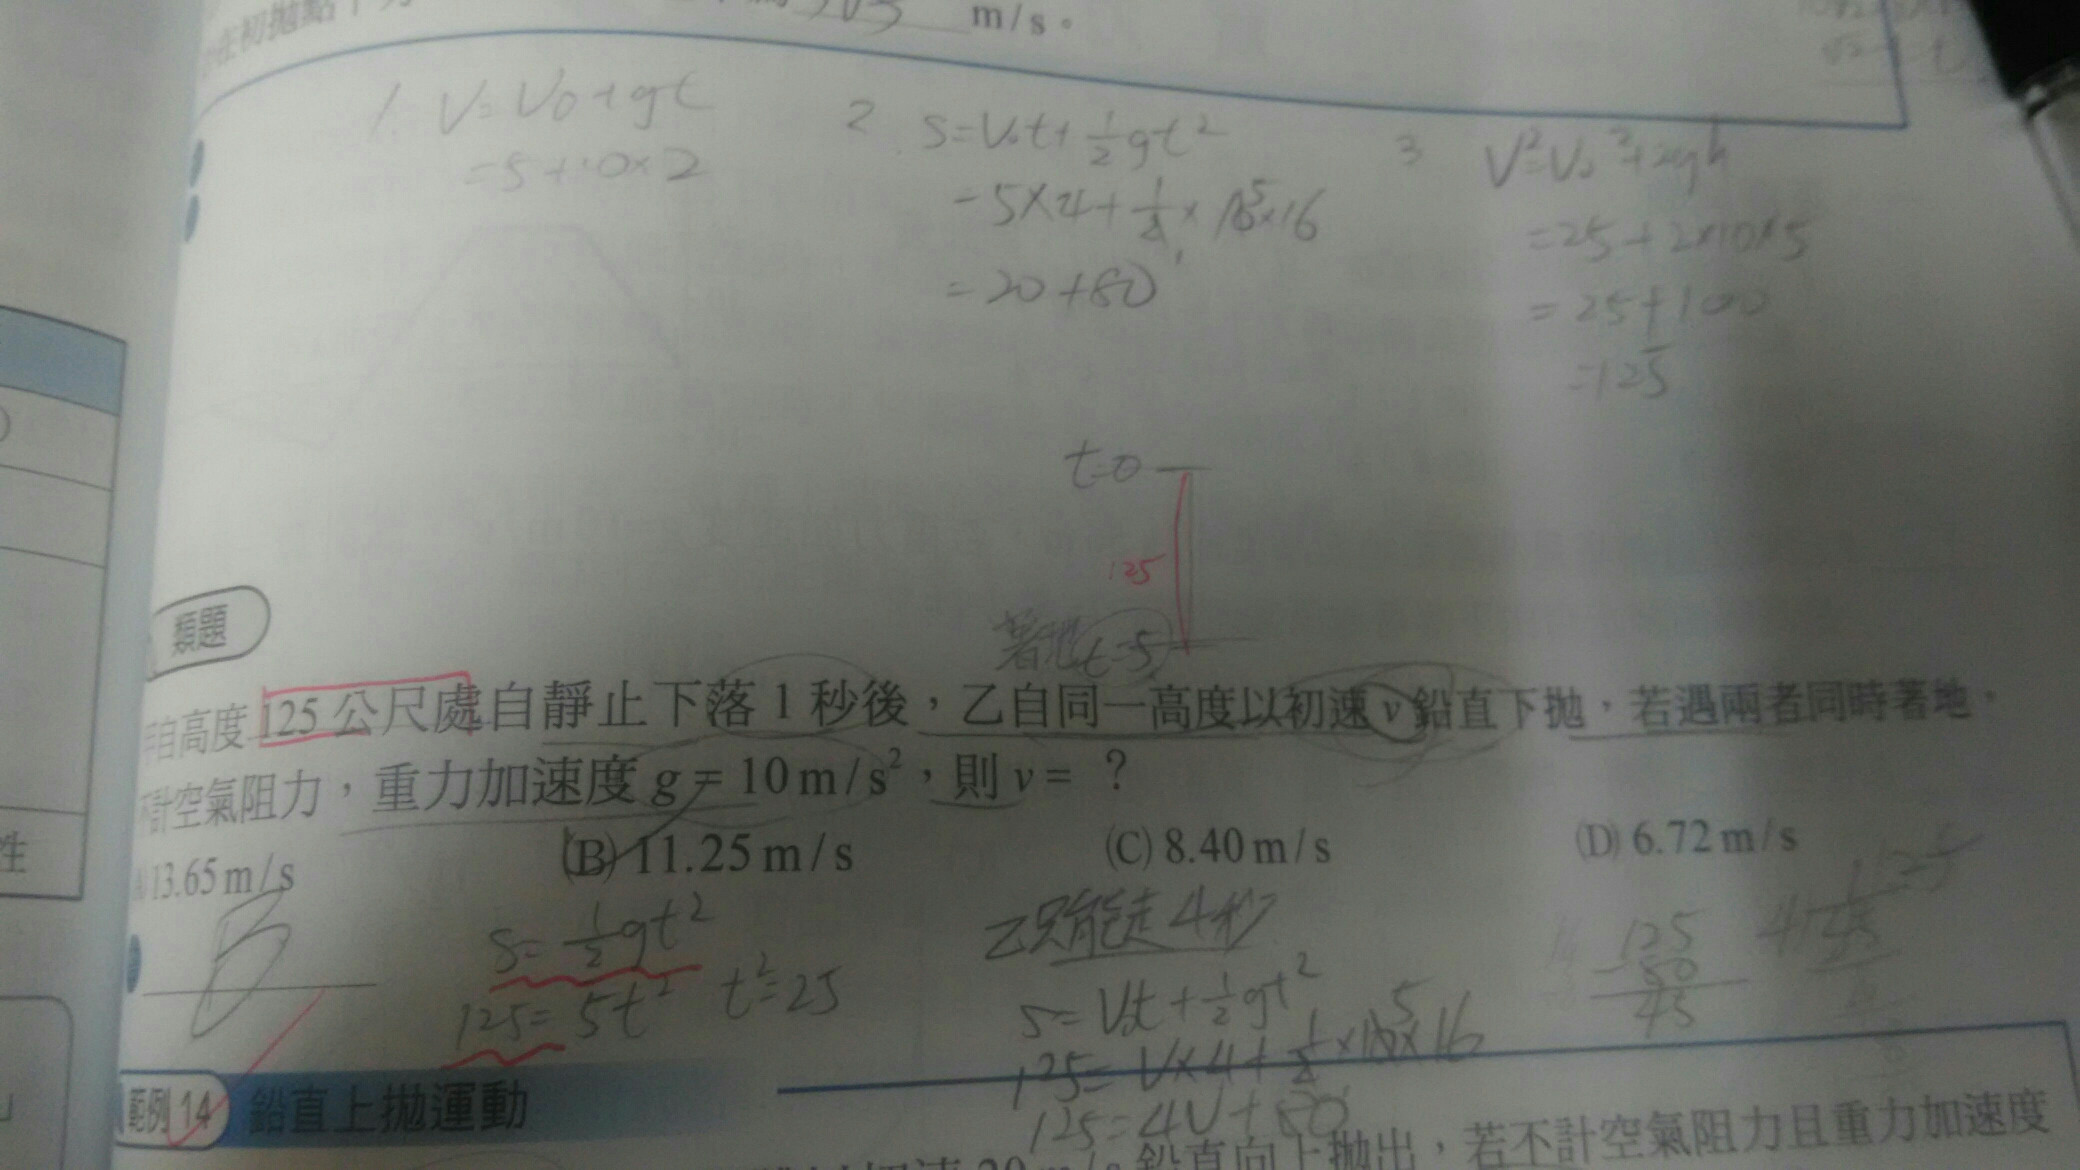 在初拋點下方
m/s。
1. V=V0+gt
=5+10×2
2. S=V0t+1/2gt²
=5×4+1/2×10 5×16
=20+80
3 V²=V0²+2gh
=25+2×10×5
=25+100
=125
t=0
125
著地t=5
類題
自高度125公尺處自靜止下落1秒後,乙自同一高度以初速v鉛直下拋,若遇兩者同時著地,
不計空氣阻力,重力加速度g=10m/s²,則v= ?
13.65m/s (B) 11.25m/s (C) 8.40m/s (D) 6.72m/s
B
S=1/2gt²
125=5t² t²=25
乙只能走4秒
S=V0t+1/2gt²
125=V×4+1/2×10 5×16
125=4V+80
125
80
45
性
範例14 鉛直上拋運動
鉛直向上拋出,若不計空氣阻力且重力加速度